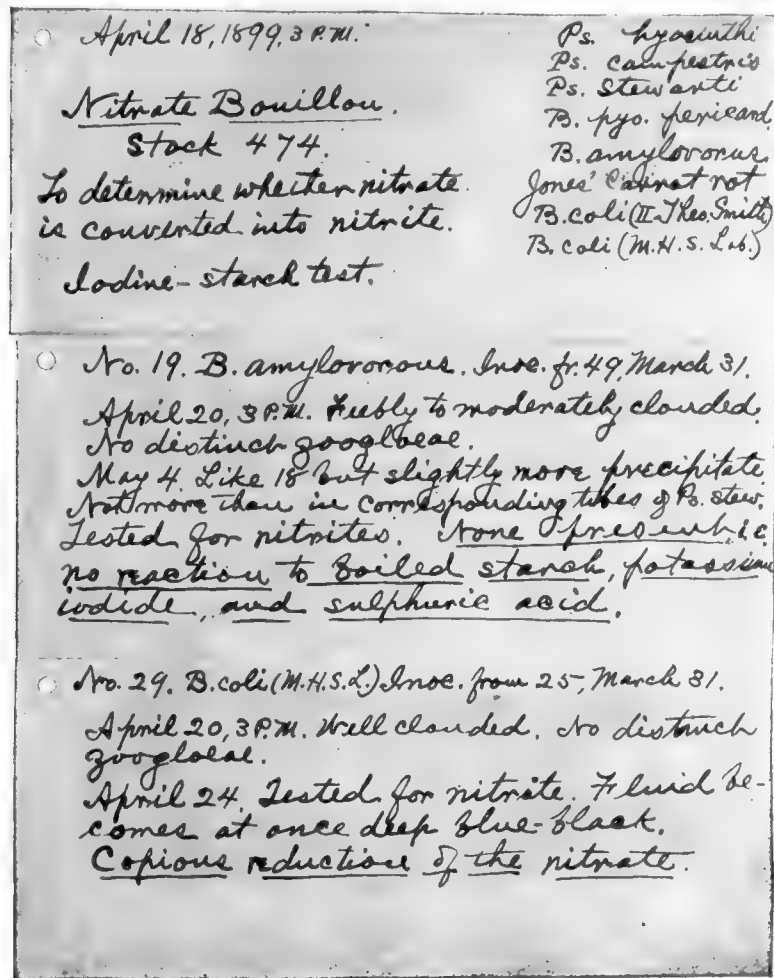 April 18, 1899, 3 P.M.
Nitrate Bouillon.
Stock 474.
To determine whether nitrate
is converted into nitrite.
Iodine-starch test.
Ps. hyacinthi
Ps. campestris
Ps. stewarti
B. pyo. pericard.
B. amylovorus
Jones' Carrot rot
B. coli (II. Theo. Smith)
B. coli (M.H.S. Lab.)
No. 19. B. amylovorous. Inoc. fr. 49, March 31.
April 20, 3 P.M. Feebly to moderately clouded.
No distinct zoogloeae.
May 4. Like 18 but slightly more precipitate
Not more than in corresponding tubes of Ps. stew.
Tested for nitrites. None present i.e.
no reaction to boiled starch, potassium
iodide, and sulphuric acid.
No. 29. B. coli (M.H.S.L.) Inoc. from 25, March 31.
April 20, 3 P.M. Well clouded. No distinct
zoogloeae.
April 24. Tested for nitrite. Fluid be-
comes at once deep blue-black.
Copious reduction of the nitrate.